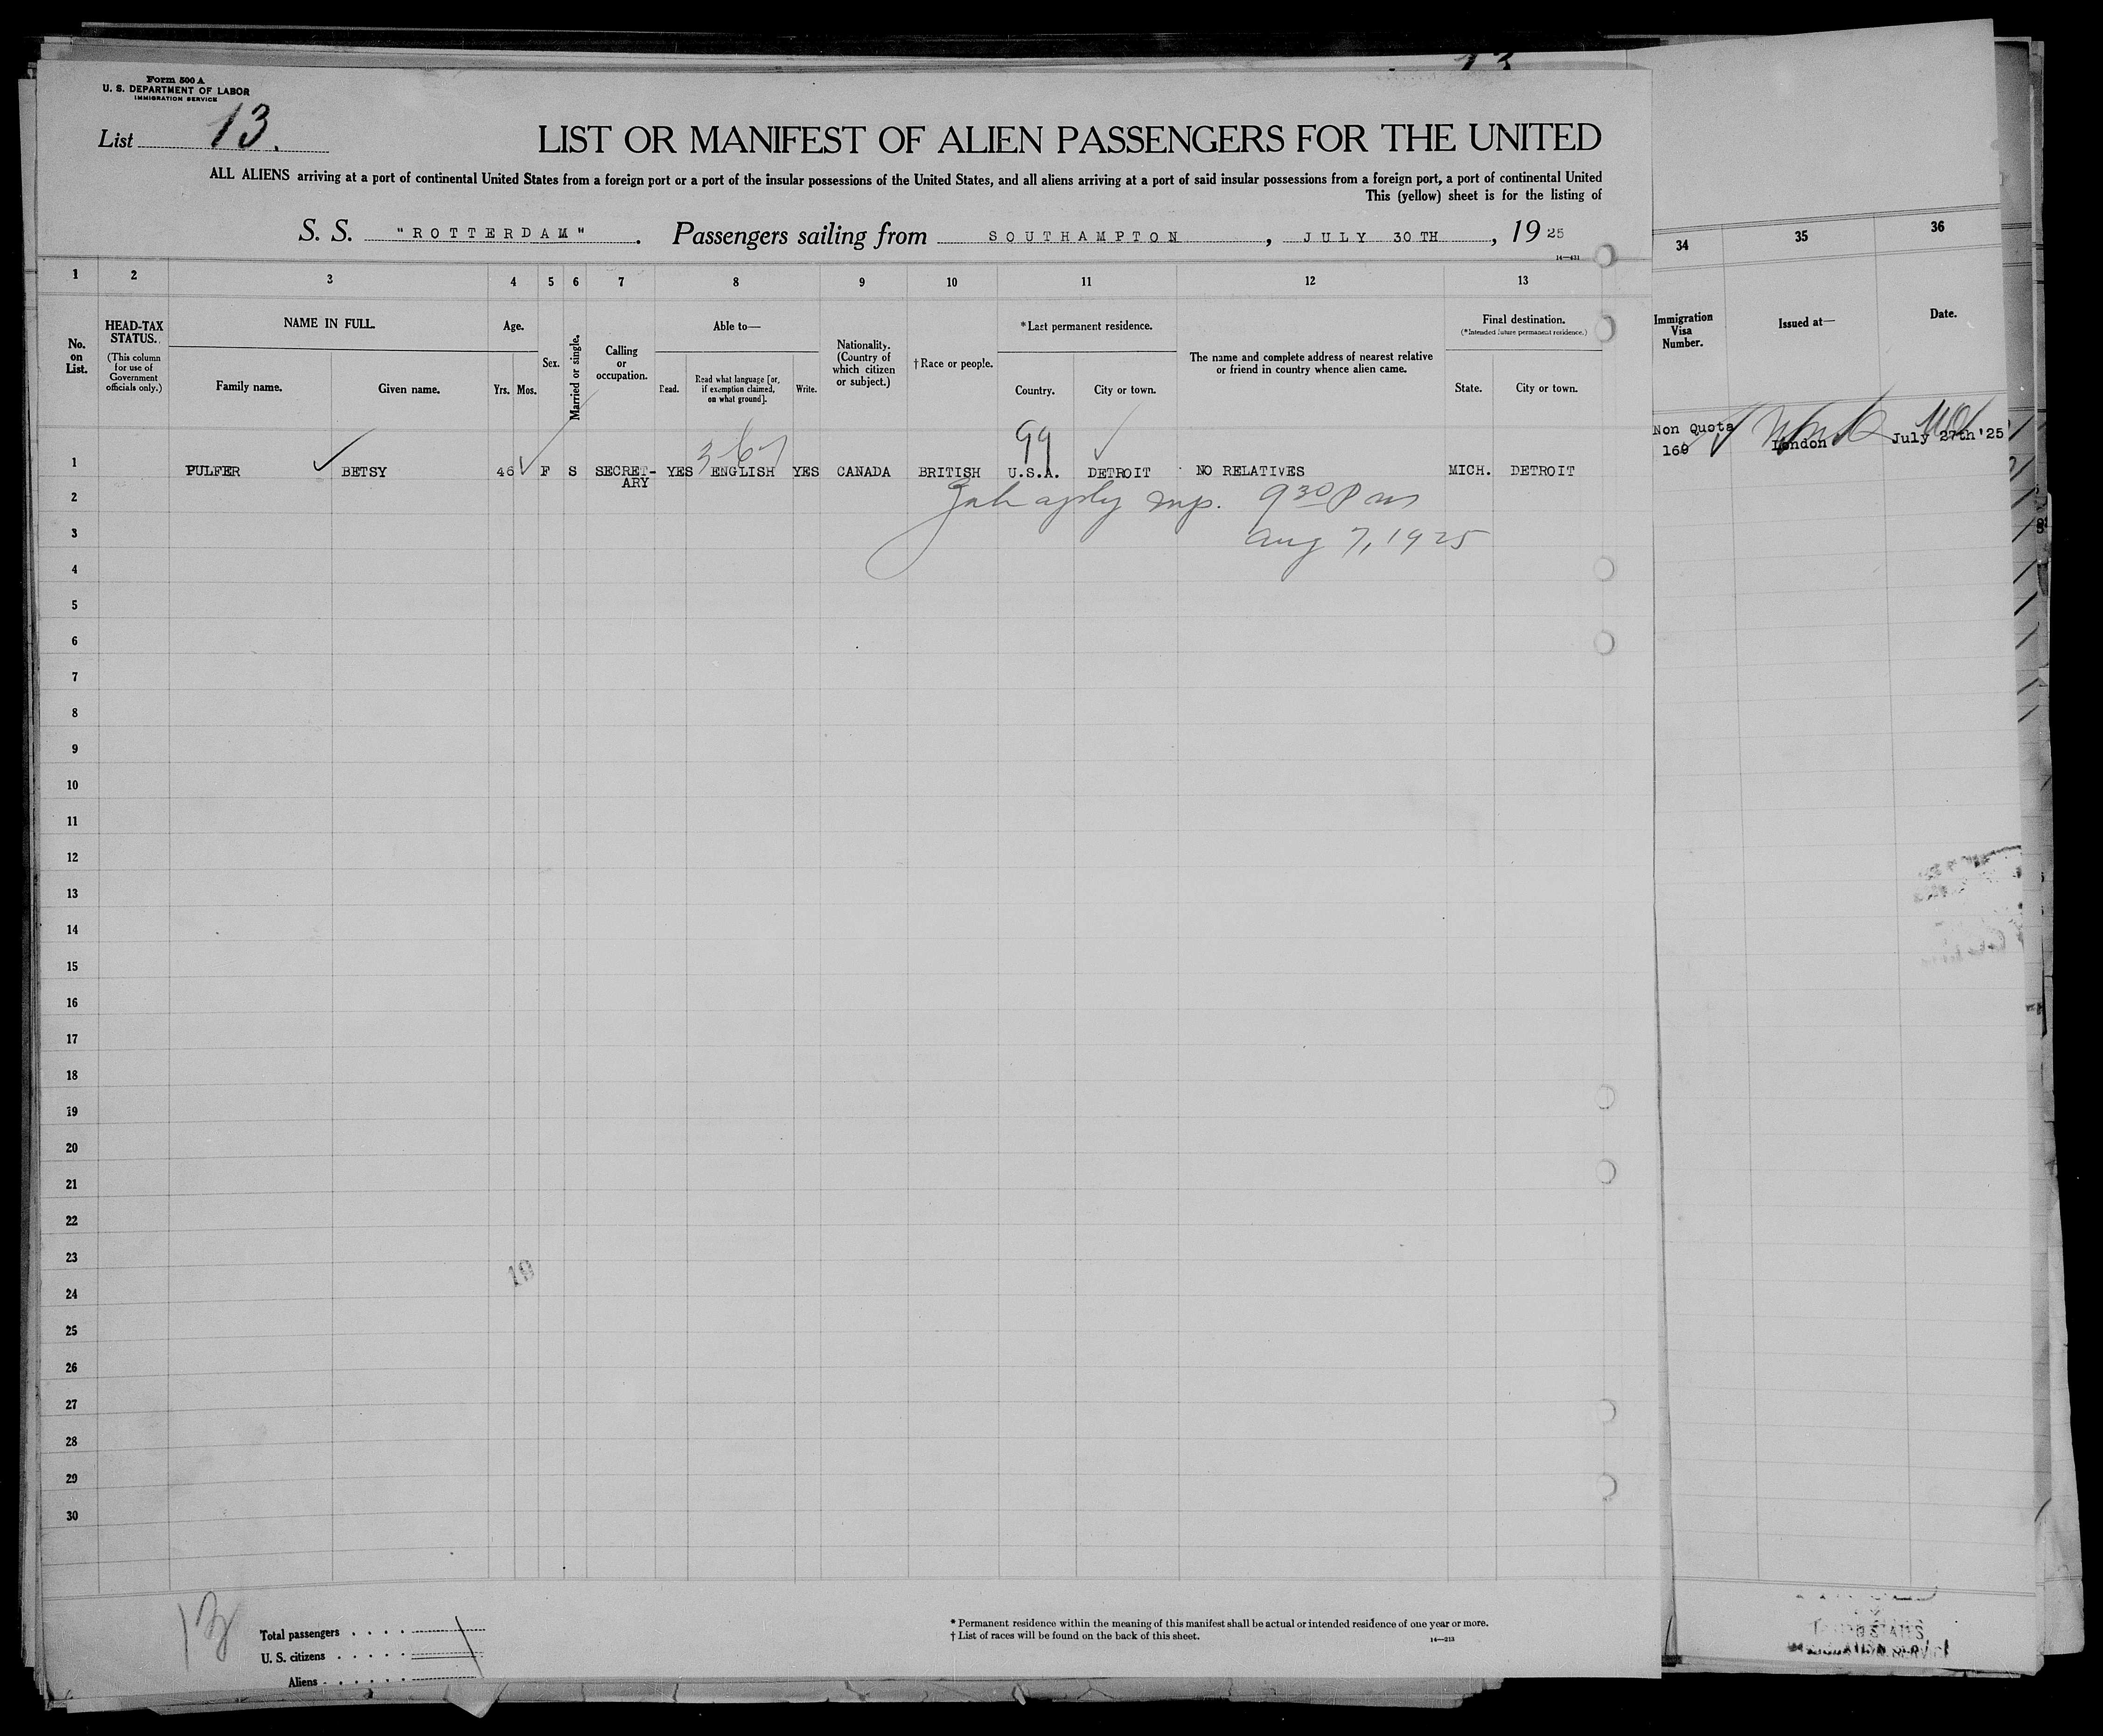 Form 500 A
U. S. DEPARTMENT OF LABOR
IMMIGRATION SERVICE
List 13.
LIST OR MANIFEST OF ALIEN PASSENGERS FOR THE UNITED
ALL ALIENS arriving at a port of continental United States from a foreign port or a port of the insular possessions of the United States, and all aliens arriving at a port of said insular possessions from a foreign port, a port of continental United
This (yellow) sheet is for the listing of
S. S. "ROTTERDAM". Passengers sailing from SOUTHAMPTON, JULY 30TH, 1925
14—431
1 2 3 4 5 6 7 8 9 10 11 12 13 34 35 36
No. on List.
HEAD-TAX STATUS.
(This column for use of Government officials only.)
NAME IN FULL.
Family name. Given name.
Age.
Yrs. Mos.
Sex.
Married or single.
Calling or occupation.
Able to—
Read. Read what language [or, if exemption claimed, on what ground]. Write.
Nationality. (Country of which citizen or subject.)
†Race or people.
*Last permanent residence.
Country. City or town.
The name and complete address of nearest relative or friend in country whence alien came.
Final destination.
(*Intended future permanent residence.)
State. City or town.
Immigration Visa Number.
Issued at—
Date.
367 99
1 PULFER BETSY 46 F S SECRET-ARY YES ENGLISH YES CANADA BRITISH U.S.A. DETROIT NO RELATIVES MICH. DETROIT Non Quota 169 London July 27th '25
2 9 30 P m
3 Aug 7, 1925
4
5
6
7
8
9
10
11
12
13
14
15
16
17
18
19
20
21
22
23
24
25
26
27
28
29
30
13
Total passengers
U. S. citizens
Aliens
* Permanent residence within the meaning of this manifest shall be actual or intended residence of one year or more.
† List of races will be found on the back of this sheet.
14—213